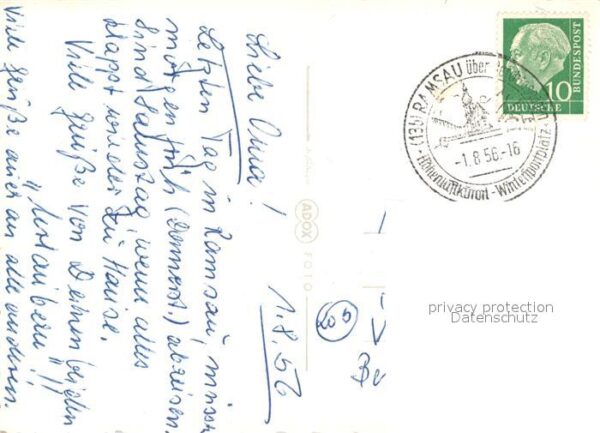 1.8.56
Liebe Oma!
Letzten Tag in Ramsau, müssen
morgen früh (Donnerst.) abreisen,
sind Samstag wenn alles
klappt wieder zu Hause.
Viele Grüße von Deinen beiden
"Urlaubern"!
Viele Grüße auch an alle anderen.
ADOX FOTO
(13b) RAMSAU über
-1.8.56.-16
Höhenluftkurort - Wintersportplatz
10
DEUTSCHE
BUNDESPOST
privacy protection
Datenschutz